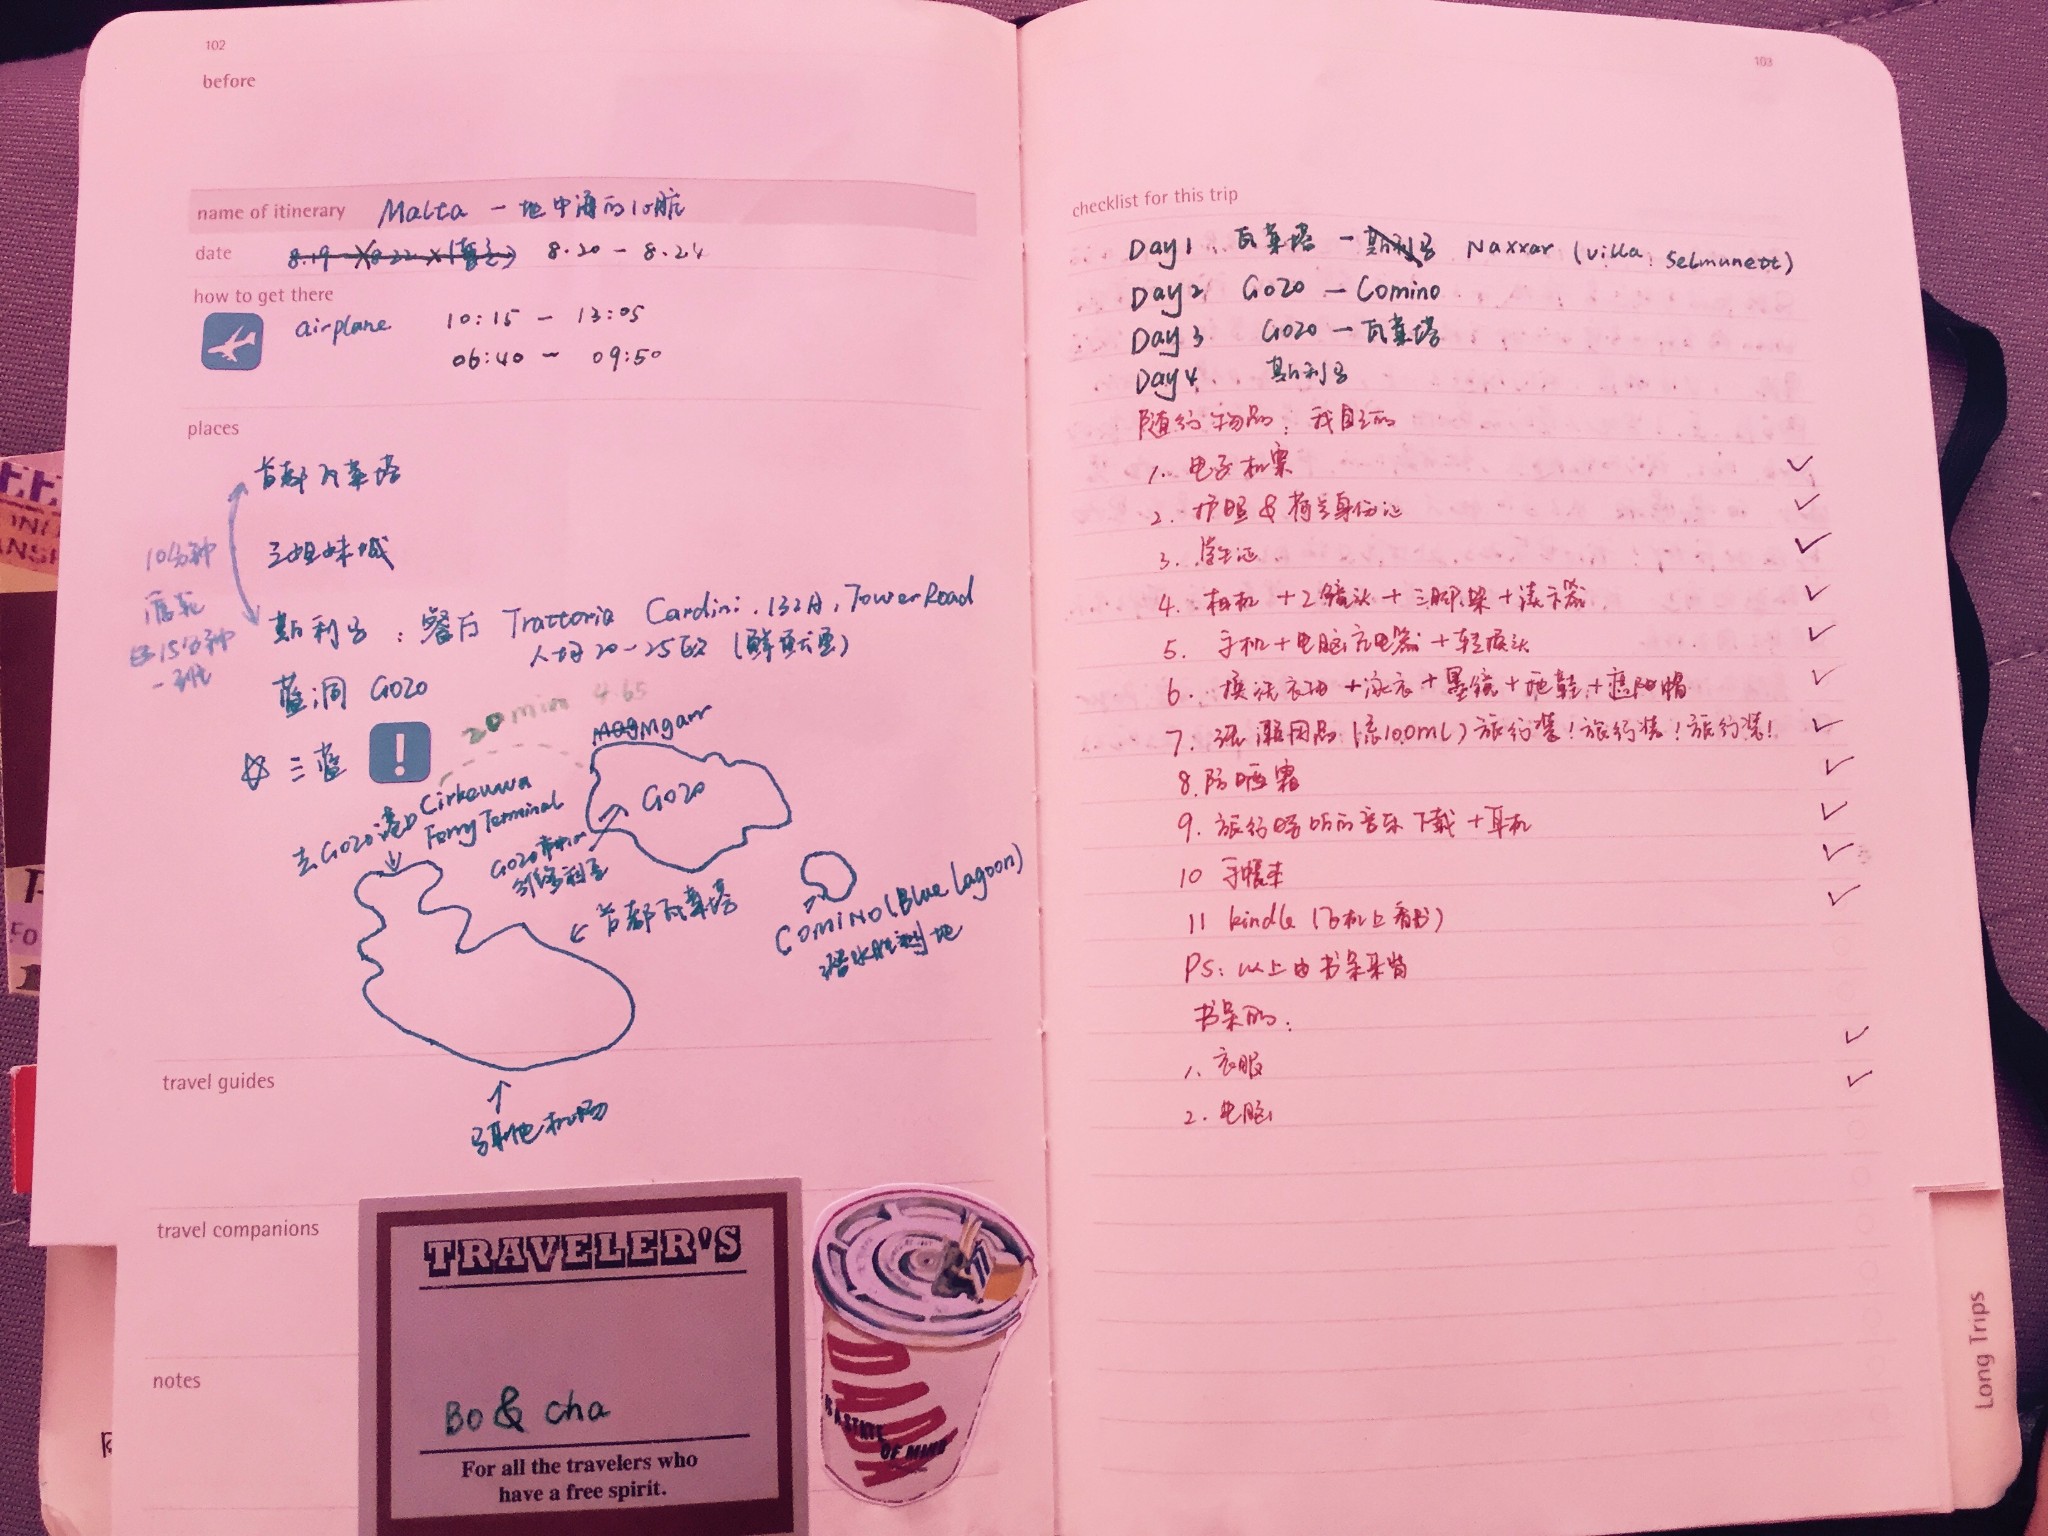 102
before
name of itinerary Malta — 地中海的心脏
date 8.20 — 8.24
how to get there
airplane 10:15 — 13:05
06:40 — 09:50
places
首都瓦莱塔
三姐妹城
10分钟
渡轮
15分钟
一班
斯利马：餐厅 Trattoria Cardini, 132A, Tower Road
人均20—25欧
蓝洞 Gozo
20min 4.65
三蓝 !
Mgarr
Gozo
去Gozo港口 Cirkewwa
Ferry Terminal
Gozo
首都瓦莱塔
Comino (Blue Lagoon)
潜水胜地
travel guides
马耳他机场
travel companions
TRAVELER'S
Bo & cha
For all the travelers who
have a free spirit.
notes
DADA
IS A STATE
OF MIND
103
checklist for this trip
Day1 瓦莱塔 — 斯利马 Naxxar (villa Selmunett)
Day2 Gozo — Comino
Day3 Gozo — 瓦莱塔
Day4 斯利马
随行物品：我自己的
1. 电子机票
2. 护照 & 荷兰身份证
3. 学生证
4. 相机 + 2镜头 + 三脚架 +
5. 手机 + 电脑充电器 + 转换头
6. 换洗衣物 + 泳衣 + 墨镜 + 拖鞋 + 遮阳帽
7. 洗漱用品 (100ml) 旅行装！旅行装！旅行装！
8. 防晒霜
9. 旅行听的音乐下载 + 耳机
10 手帐本
11 kindle (飞机上看书)
PS: 以上由书呆
书呆的：
1. 衣服
2. 电脑
Long Trips